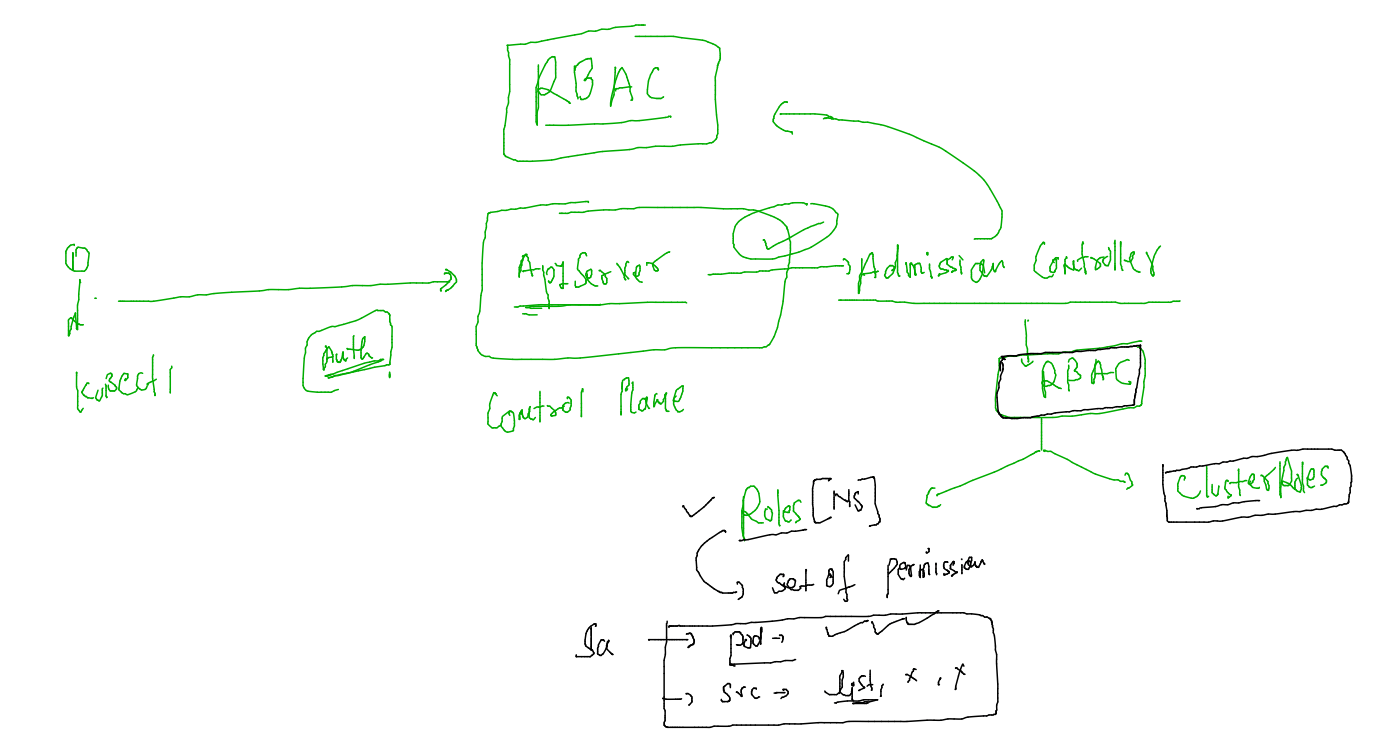 RBAC
ApiServer
Admission Controller
Auth
KuBectl
Control Plane
RBAC
Roles [NS]
ClusterRoles
set of permission
Sa
pod →
src → list, x, x